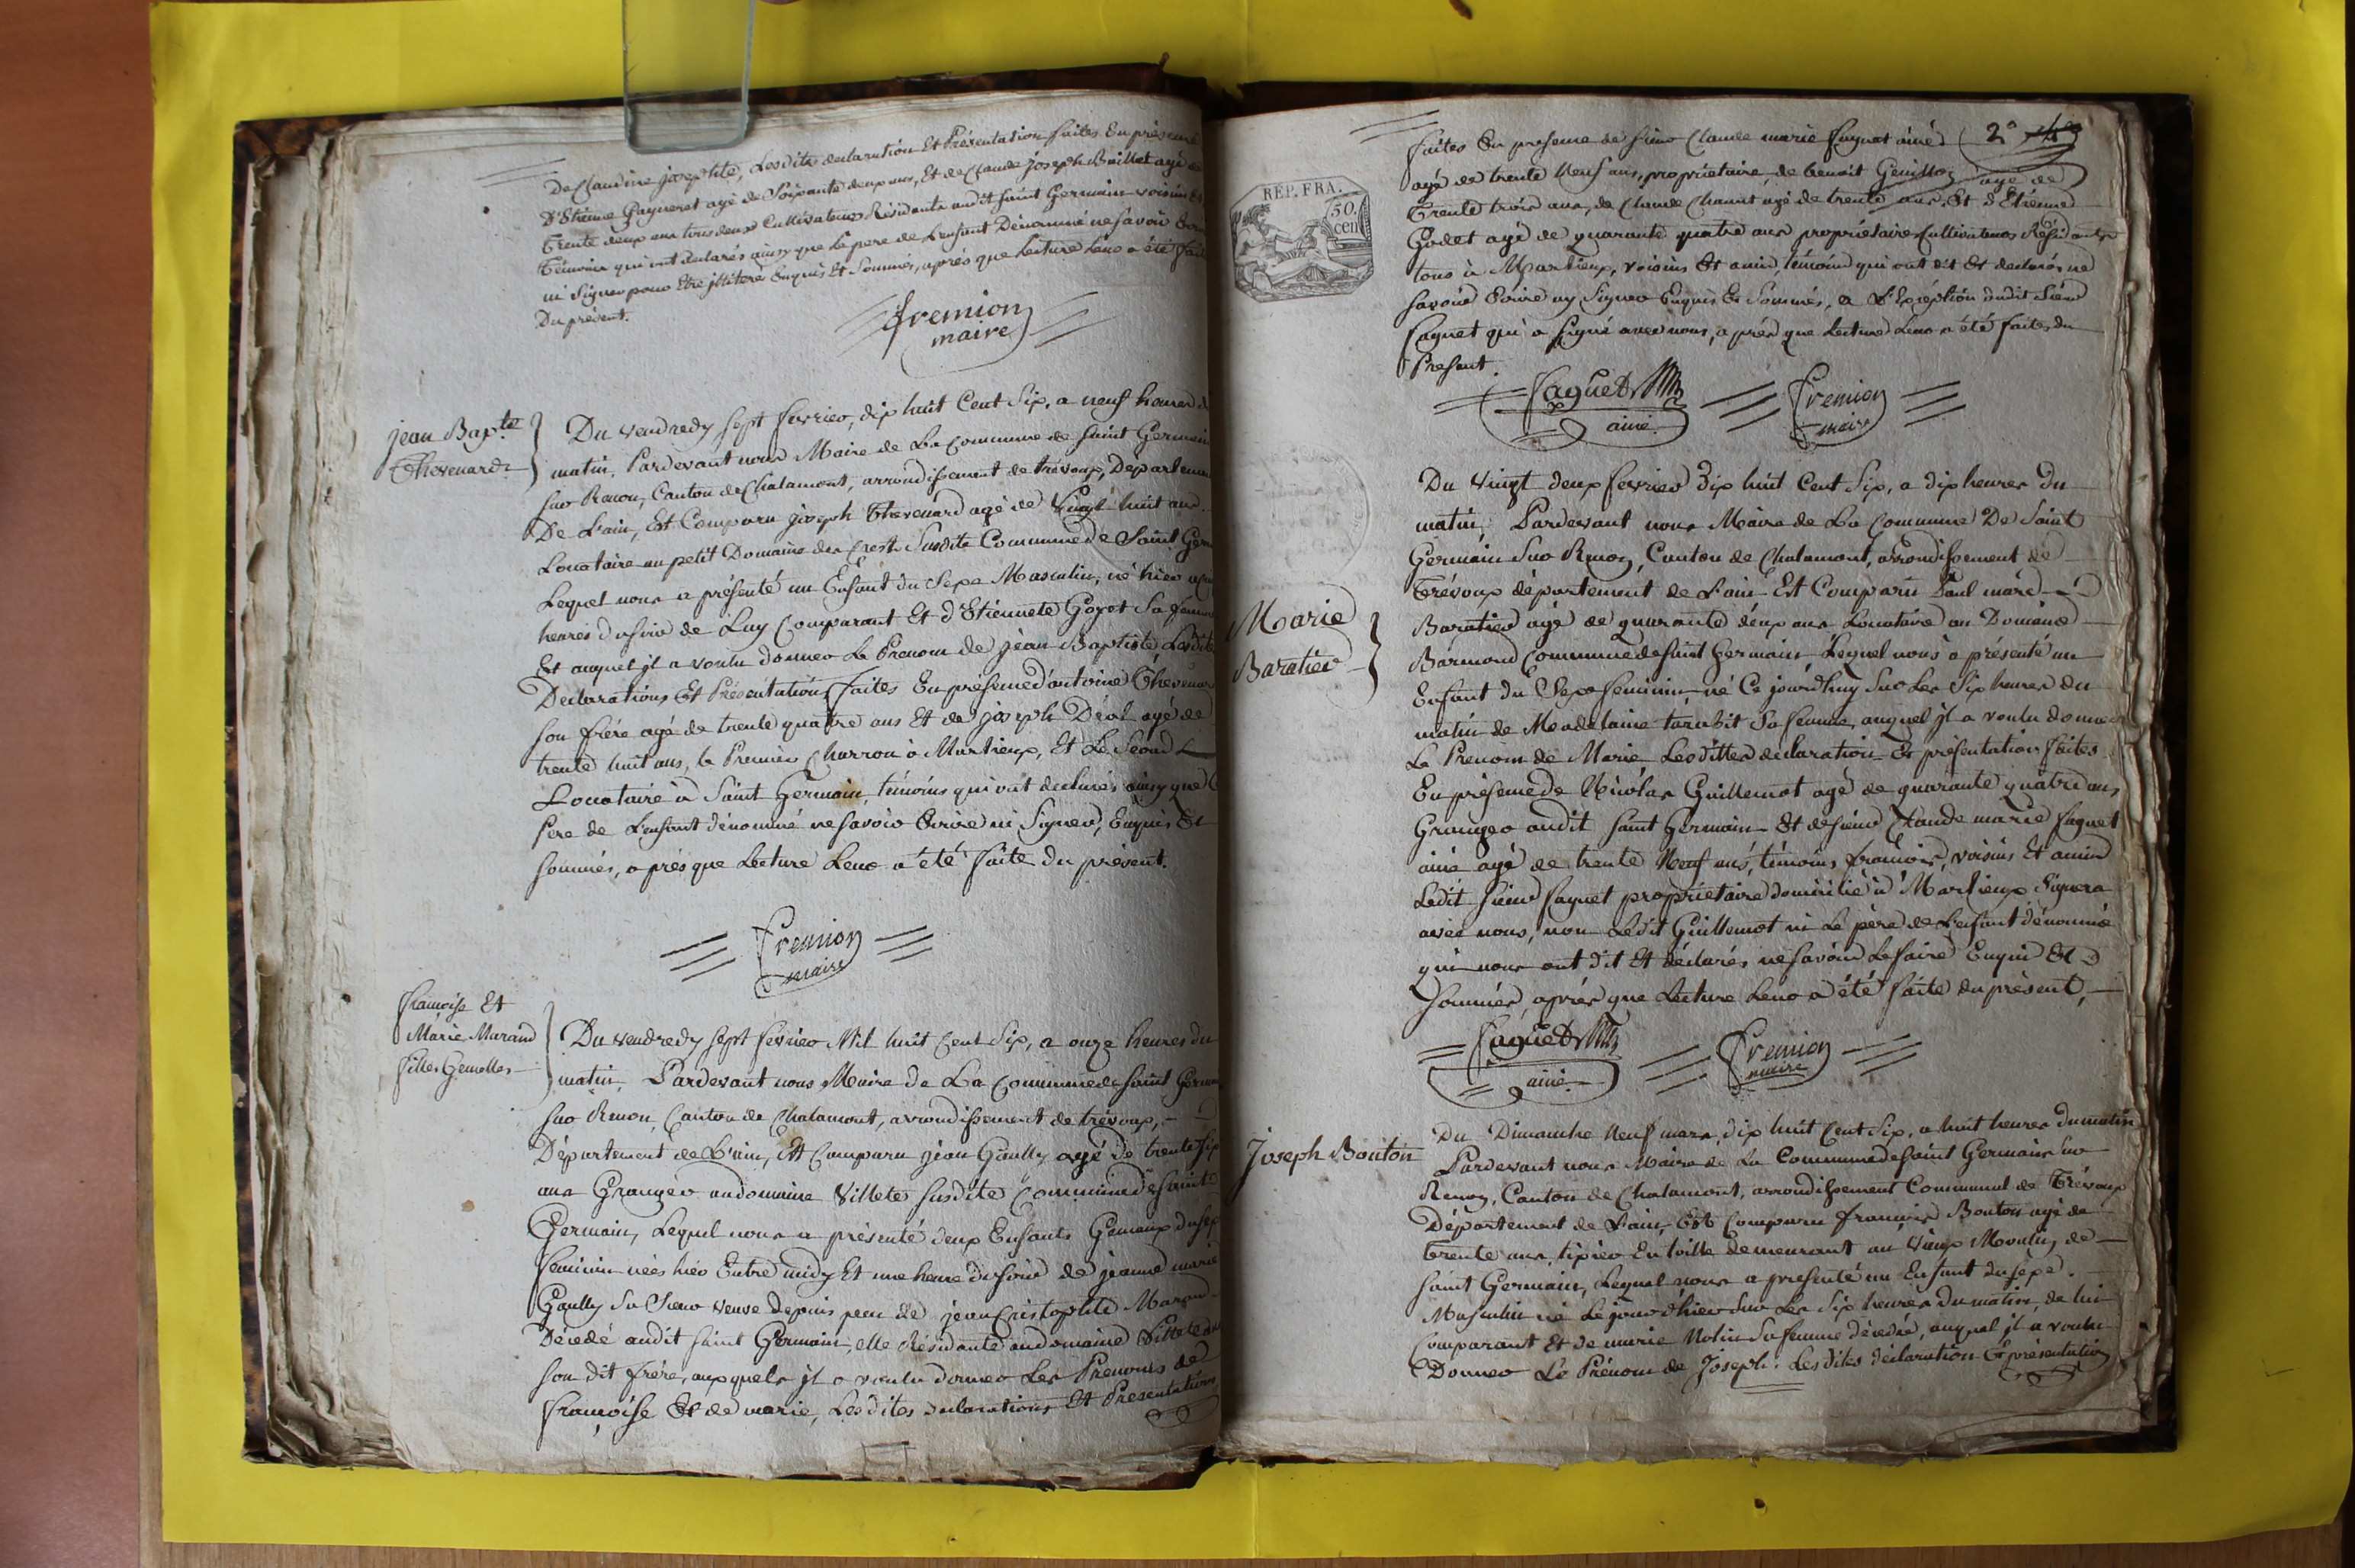 De Claudine josephte, Lesdites declaration Et Présentation faites En présence
D'Etienne Gagneret agé de Soixante deux ans, Et de Claude joseph Baillet agé de
Trente deux ans tous deux Cultivateurs Résidants audit Saint Germain voisins Et
témoins qui ont declarés ainsy que Le pere de L'enfant Dénommé ne savoir Ecrire
ni Signer pour Etre jllitéré Enquis Et Sommés, après que Lecture Leur a été faite
Du présent.
fremion
maire
jean Bapte
Thevenard
Du vendredy sept fevrier, dix huit Cent Six, a neuf heures du
matin, Pardevant nous Maire de La Commune de Saint Germain
sur Renon, Canton de Chalamont, arrondissement de trévoux, Departement
De L'ain, Est Comparu joseph Thevenard agé de Vingt huit ans
Locataire au petit Domaine du Crest Susdite Commune de Saint Ger
Lequel nous a présenté un Enfant du Sexe Masculin, né hier
heures du soir de Luy Comparant Et d'Etiennete Goyot Sa femme
Et auquel jl a voulu donner Le Prenom de jean Baptiste Lesdites
Declarations Et Présentation faites En présence d'antoine Thevenard
son frére agé de trente quatre ans Et de joseph Déal agé de
trente huit ans, le Premier Charron à Marlieux, Et Le Second
Locataire à Saint Germain, témoins qui ont declarés ainsy que Le
Pere de L'enfant dénommé ne savoir Ecrire ni Signer, Enquis Et
sommés, après que Lecture Leur a été faite du présent.
fremion
maire
françoise Et
Marie Murand
filles Gemelles
Du vendredy sept fevrier Mil huit Cent Six, a onze heures du
matin, Pardevant nous Maire de La Commune de Saint Germain
sur Renon, Canton de Chalamont, arrondissement de trévoux,
Département de L'ain, Est Comparu jean Gaully agé de trente six
ans Granger au domaine Villete susdite Commune de Saint
Germain, Lequel nous a présenté deux Enfants Gemeaux du sexe
feminin nées hier Entre midy Et une heure du soir de jeanne marie
Gaully Sa Soeur veuve depuis peu de jean Cristophle Marand
Décédé audit Saint Germain, elle Résidante au domaine Villete
son dit frére, auxquels jl a voulu donner Les Prenoms de
françoise Et de marie, Lesdites declarations Et Presentations
faites En presence de sieur Claude marie faguet ainé
2e
agé de trente Neuf ans, propriétaire, de benoit Guillon agé de
Trente trois ans, de Claude Chanut agé de trente ans, Et d'Etienne
Godet agé de quarante quatre ans propriétaires Cultivateurs Résidants
tous à Marlieux, voisins Et amis, témoins qui ont dit Et declarés ne
savoir Ecrire ny Signer Enquis Et Sommés, a L'Exception dudit Sieur
faguet qui a Signé avec nous, après que Lecture Leur a été faites du
Present.
faguet
ainé
fremion
maire
REP. FRA.
50.
cen
Marie
Baratier
Du Vingt deux fevrier Dix huit Cent Six, a dix heures du
matin, Pardevant nous Maire de La Commune De Saint
Germain Sur Renon, Canton de Chalamont, arrondissement de
Trévoux département de L'ain Est Comparu Paul marc
Baratier agé de quarante deux ans Locataire au Domaine
Barmond Commune de Saint Germain Lequel nous a présenté un
Enfant du Sexe feminin né Ce jourd'huy Sur Les Six heures du
matin de Madelaine tarabit Sa femme, auquel jl a voulu donner
Le Prenom de Marie Lesdittes declaration Et présentation faites
En présence de Nicolas Guillemot agé de quarante quatre ans,
Granger audit Saint Germain Et de sieur Claude marie faguet
ainé agé de trente Neuf ans, témoins françois, voisins Et amis
Ledit sieur faguet propriétaire domicilié à Marlieux Signera
avec nous, non Ledit Guillemot ni Le père de L'enfant dénommé
qui nous ont dit Et déclarés ne savoir Le faire Enquis Et
Sommés, après que Lecture Leur a été faite du présent,
faguet
ainé
fremion
maire
Joseph Bouton
Du Dimanche Neuf mars, dix huit Cent Six, a huit heures du matin
Pardevant nous Maire de La Commune de Saint Germain sur
Renon, Canton de Chalamont, arrondissement Communal de Trévoux
Département de L'ain, Est Comparu françois Bouton agé de
trente ans, tixier En toille demeurant au Vieux Moulin de
Saint Germain, Lequel nous a presenté un Enfant du sexe
Masculin né Le jour d'hier Sur Les Six heures du matin, de lui
Comparant Et de marie Nolin Sa femme décédée, auquel jl a voulu
Donner Le Prénom de Joseph. Lesdites déclaration Et présentation